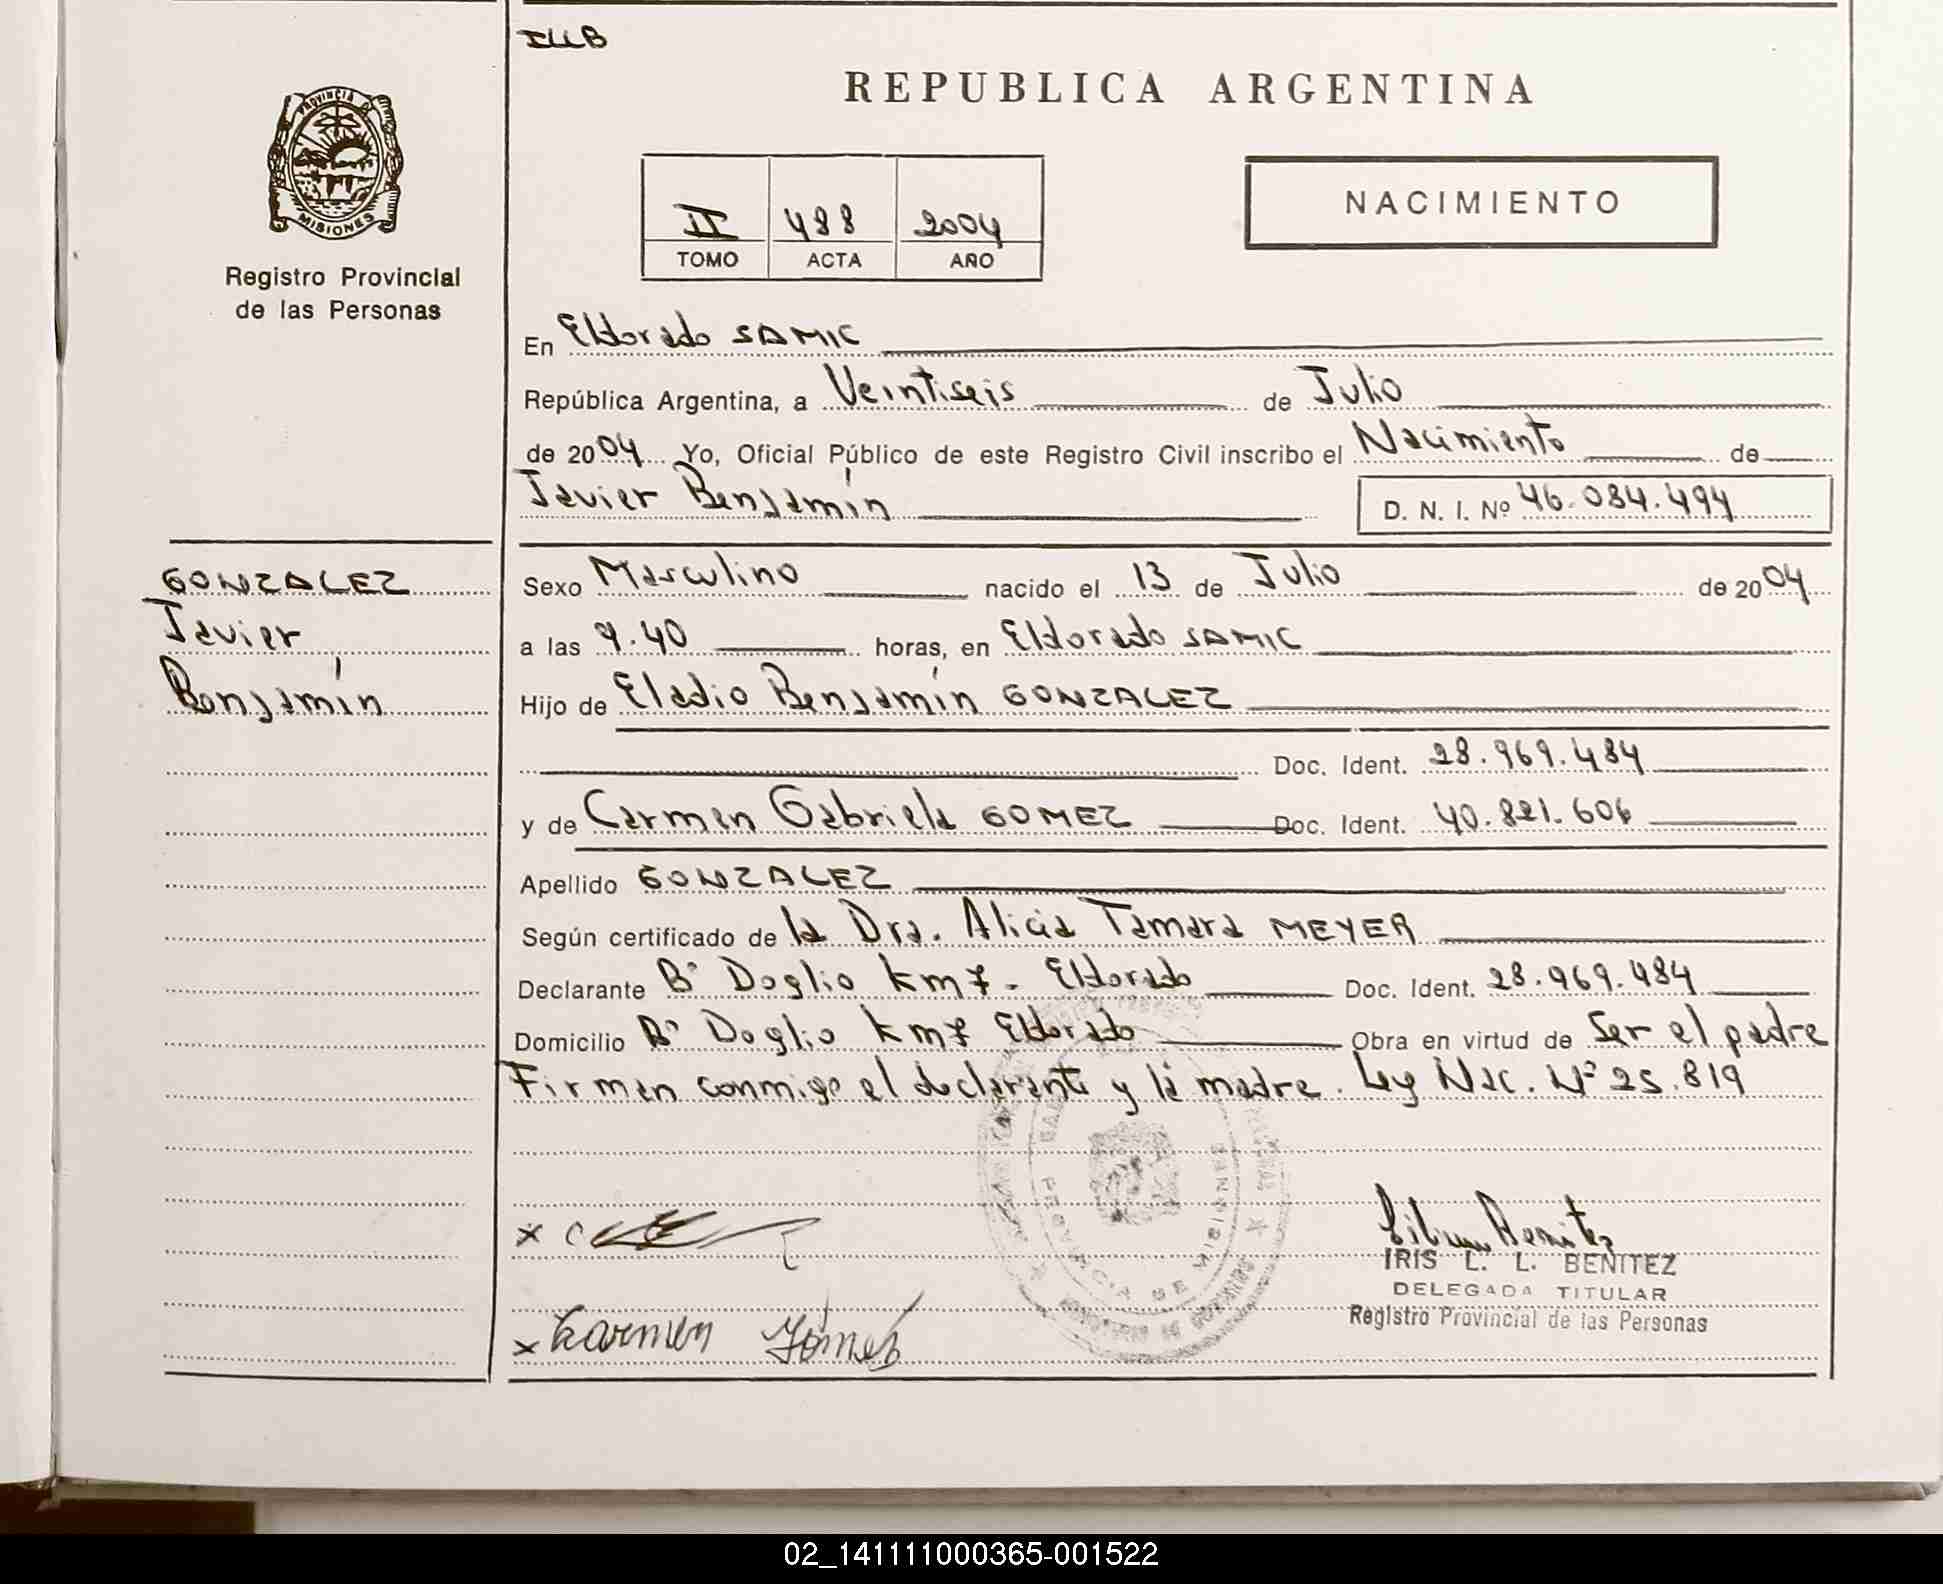 ILLB
REPUBLICA ARGENTINA
PROVINCIA D
MISIONES
Registro Provincial
de las Personas
II 488 2004
TOMO ACTA AÑO
NACIMIENTO
En Eldorado SAMIC
República Argentina, a Veintiseis de Julio
de 2004 Yo, Oficial Público de este Registro Civil inscribo el Nacimiento de
Javier Benjamín D. N. I. Nº 46.084.494
GONZALEZ
Javier
Benjamín
Sexo Masculino nacido el 13 de Julio de 2004
a las 9.40 horas, en Eldorado SAMIC
Hijo de Eladio Benjamín GONZALEZ
Doc. Ident. 28.969.484
y de Carmen Gabriela GOMEZ Doc. Ident. 40.821.606
Apellido GONZALEZ
Según certificado de la Dra. Alicia Tamara MEYER
Declarante Bº Doglio km 7 - Eldorado Doc. Ident. 28.969.484
Domicilio Bº Doglio km 7 Eldorado Obra en virtud de Ser el padre
Firman conmigo el declarante y la madre. Ley Nac. Nº 25.819
x
x Carmen Gómez
IRIS L. L. BENITEZ
DELEGADA TITULAR
Registro Provincial de las Personas
02_141111000365-001522